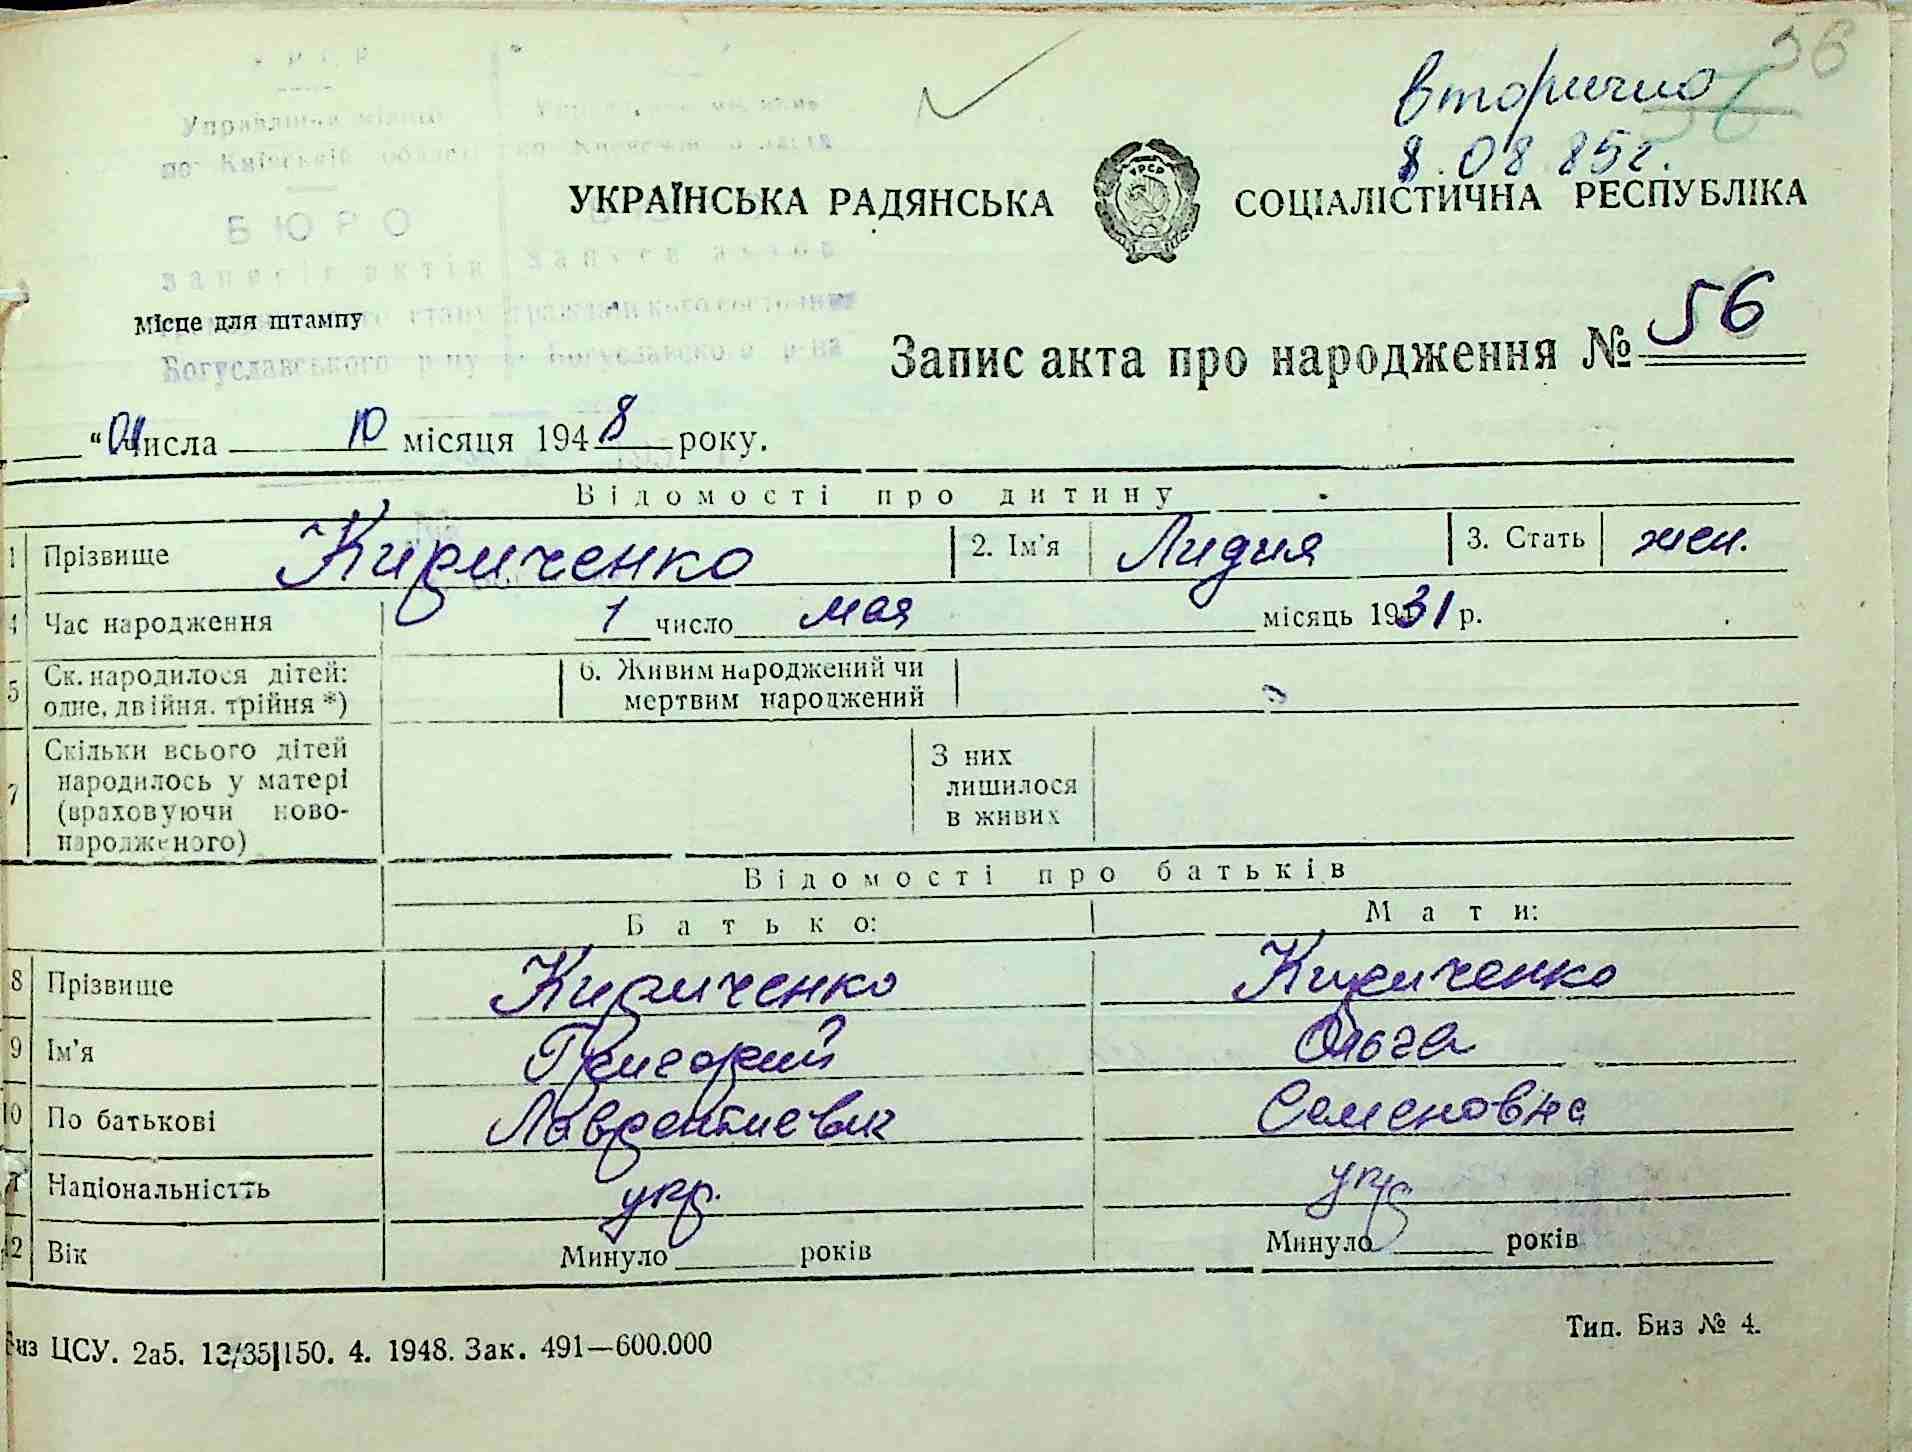 56
вторично
56
8.08.85г.
УРСР
Управління міліції
по Київській області
БЮРО
записів актів
Богуславського р-ну Богуславского р-на
УКРАЇНСЬКА РАДЯНСЬКА СОЦІАЛІСТИЧНА РЕСПУБЛІКА
Місце для штампу
Запис акта про народження № 56
"01 числа 10 місяця 1948 року.
Відомості про дитину
1 Прізвище Кириченко 2. Ім'я Лидия 3. Стать жен.
4 Час народження 1 число мая місяць 1931 р.
5 Ск. народилося дітей: одне, двійня, трійня *) 6. Живим народжений чи мертвим народжений
7 Скільки всього дітей народилось у матері (враховуючи новонародженого) З них лишилося в живих
Відомості про батьків
Батько: Мати:
8 Прізвище Кириченко Кириченко
9 Ім'я Григорий Ольга
10 По батькові Лаврентиевич Семеновна
Національність укр. укр
12 Вік Минуло року років Минуло років
ЦСУ. 2а5. 13/35|150. 4. 1948. Зак. 491—600.000
Тип. Биз № 4.